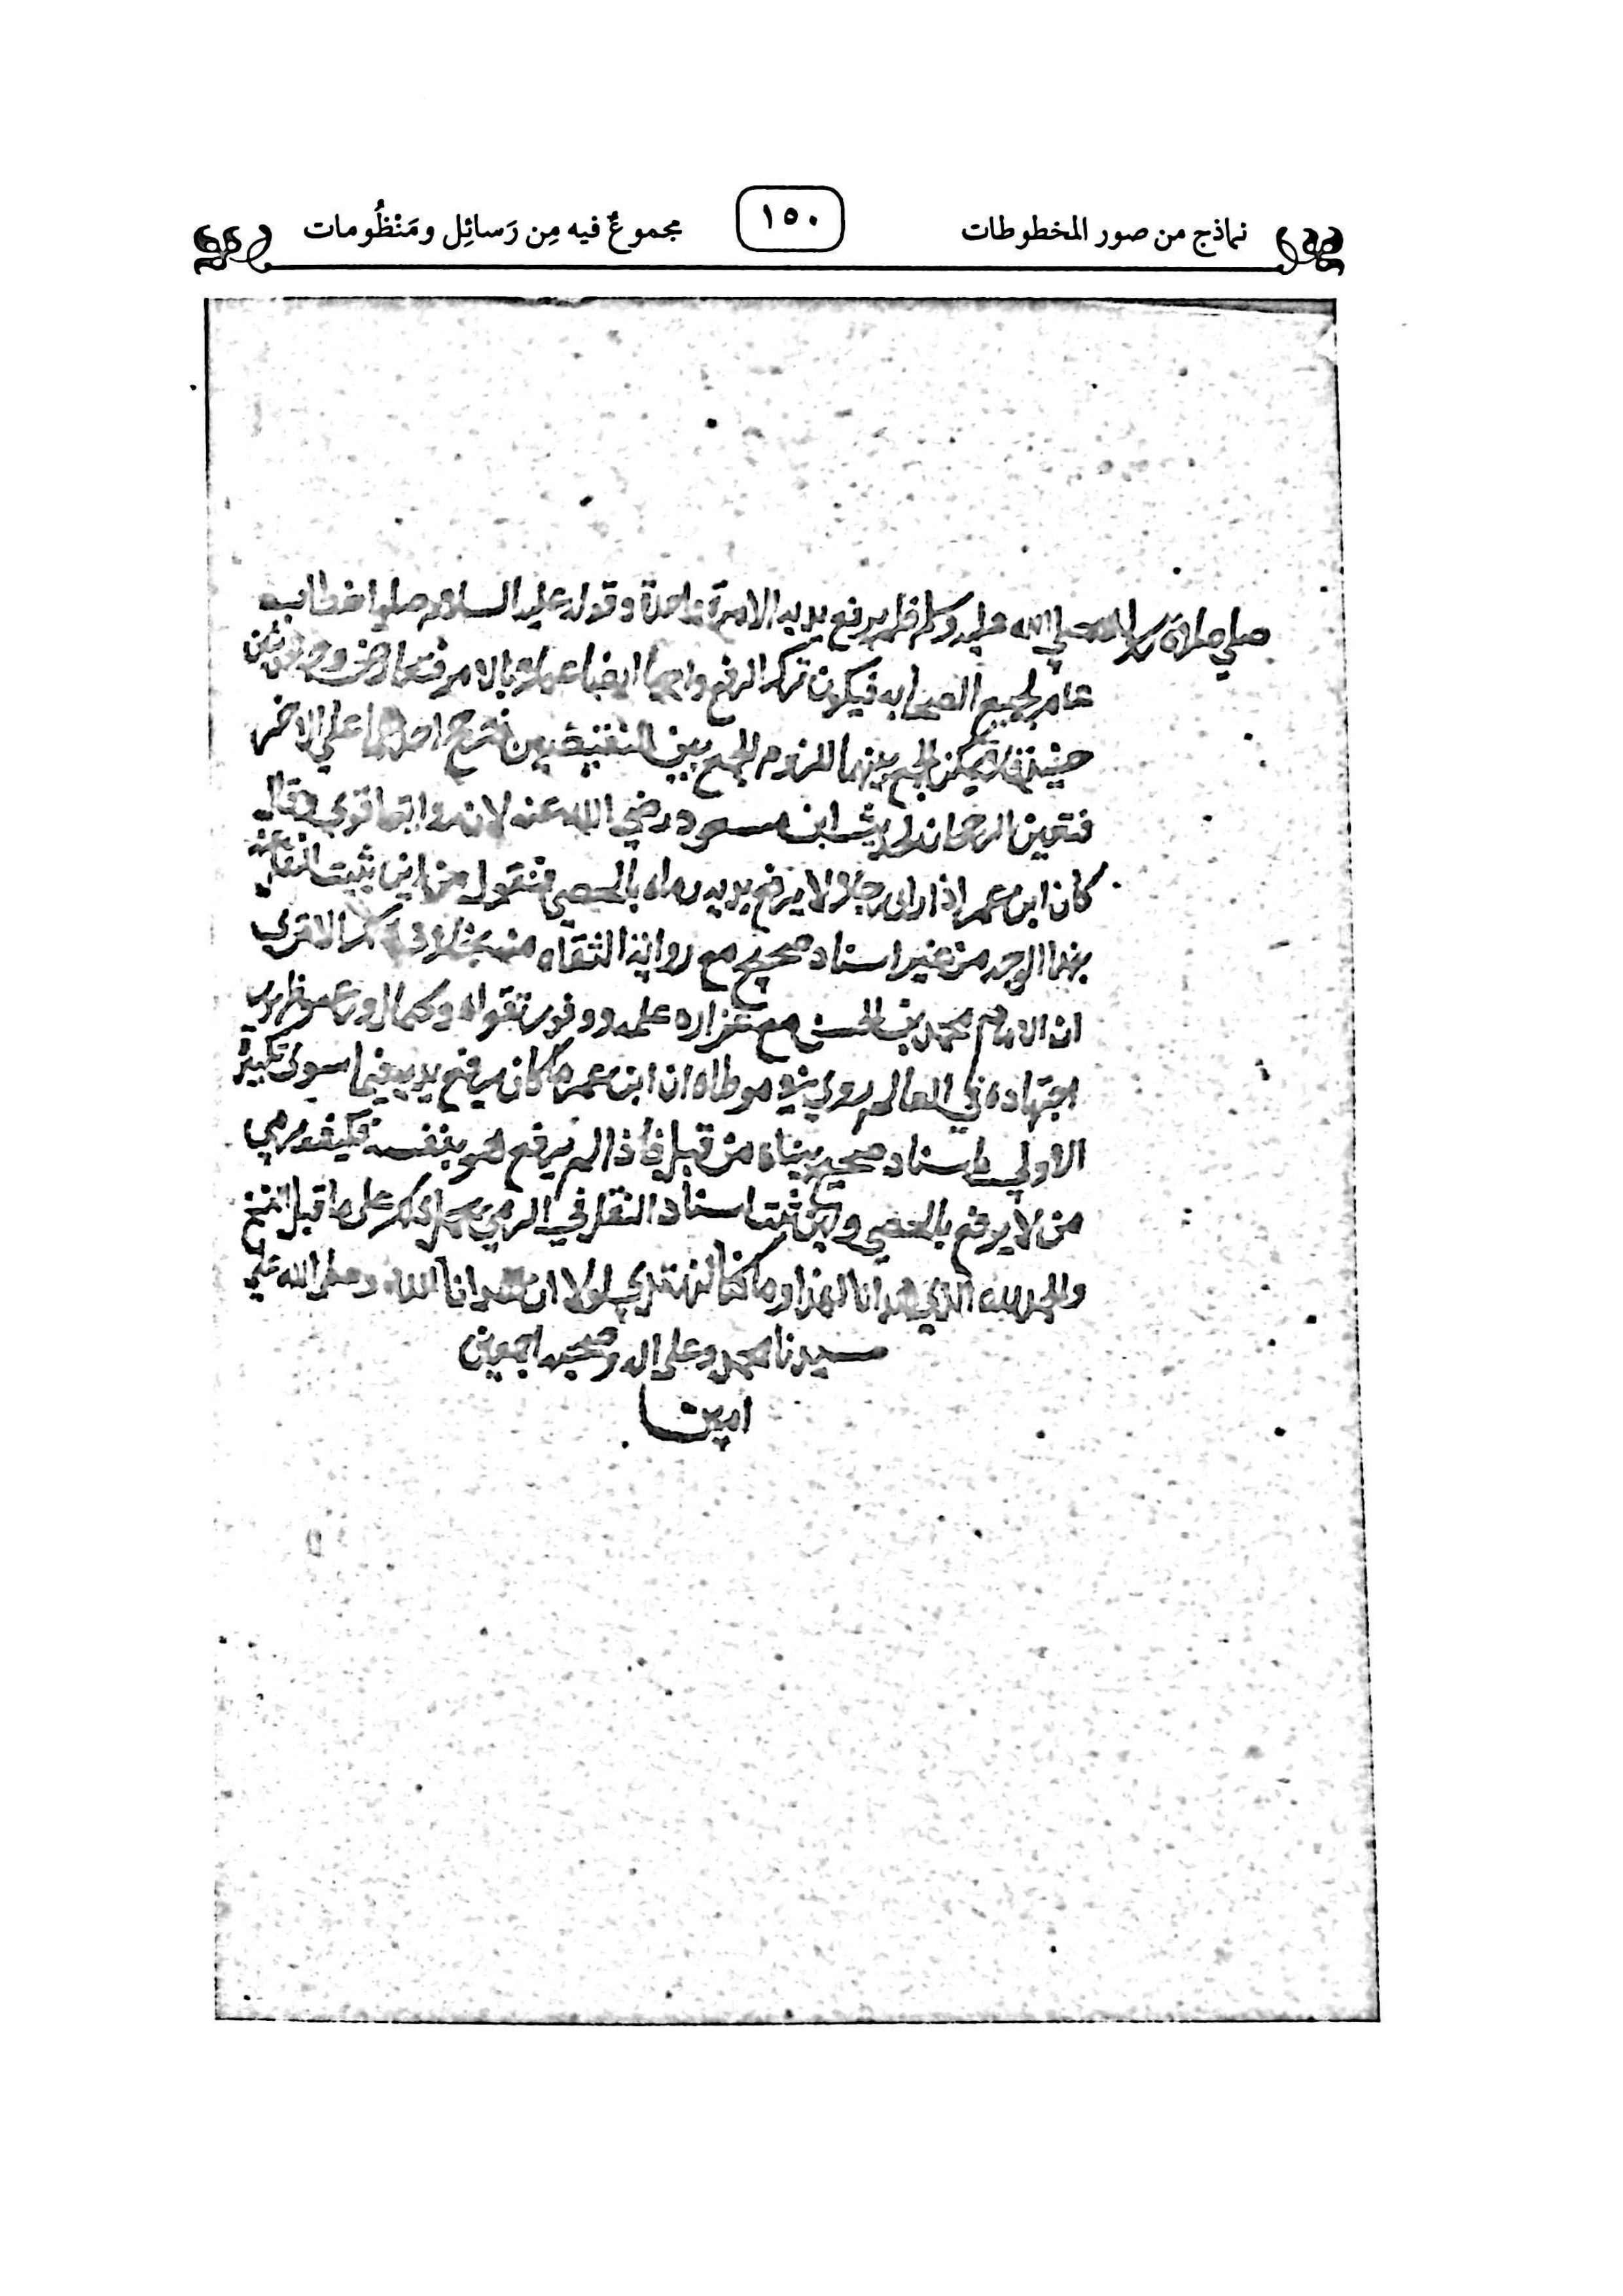 نماذج من صور المخطوطات
١٥٠
مجموعٌ فيه مِن رَسائِل ومَنْظُومات
صلي صلاة رسول الله صلي الله عليه وسلم فلم يرفع يديه الا مرة واحدة وقوله عليه السلام صلوا خطاب
عام لجميع الصحابه فيكون ترك الرفع واجبا ايضا عملا بالامر فتعارضا
حينئذ الجمع بينهما للزوم الجمع بين النقيضين احدهما علي الاخر
فتعين الرجحان لحديث ابن مسعود رضي الله عنه لان رواتها قوي وقال
كان ابن عمر اذا راى رجلا لا يرفع يديه رماه بالحصي فنقول من اين يثبت النقل عنه
بهذا الوجه من غير اسناد صحيح مع رواية الثقاه منه بخلاف الا ترى
ان الامام محمد بن الحسن مع غزاره علمه ووفور تقواه وكمال ورعه
اجتهاده في العالم روي في موطاه ان ابن عمر ما كان يرفع يديه فيما سوى تكبيرة
الاولي باسناد صحيح بيناه من قبل فاذا لم يرفع هو بنفسه فكيف يرمي
من لا يرفع بالحصي وان ثبت اسناد النقل في الرمي على ما قبل النسخ
والحمد لله الذي هدانا لهذا وما كنا لنهتدي لولا ان هدانا الله وصلى الله علي
سيدنا محمد وعلى اله وصحبه اجمعين
امين